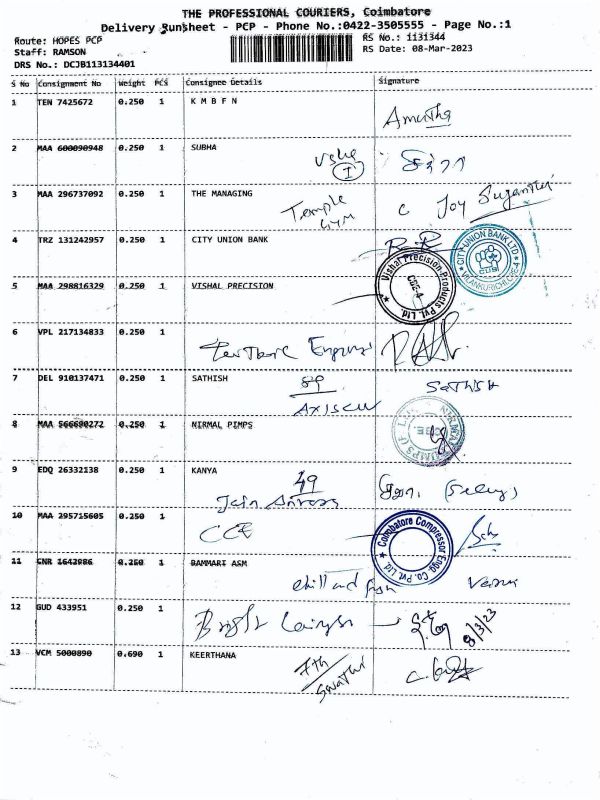 THE PROFESSIONAL COURIERS, Coimbatore
Delivery Runsheet - PCP - Phone No.:0422-3505555 - Page No.:1
Route: HOPES PCP RS No.: 1131344
Staff: RAMSON RS Date: 08-Mar-2023
DRS No.: DCJB113134401
S No Consignment No Weight PCS Consignee Details Signature
1 TEN 7425672 0.250 1 K M B F N Amurtha
2 MAA 600090948 0.250 1 SUBHA
3 MAA 296737092 0.250 1 THE MANAGING Temple GYM C Joy Suganthi
4 TRZ 131242957 0.250 1 CITY UNION BANK
CITY UNION BANK LTD CUB VILANKURICHI
5 MAA 298816329 0.250 1 VISHAL PRECISION
Vishal Precision Products Pvt. Ltd. CBE-4
6 VPL 217134833 0.250 1
7 DEL 910137471 0.250 1 SATHISH 89 SATHISH
8 MAA 566690272 0.250 1 NIRMAL PIMPS
9 EDQ 26332138 0.250 1 KANYA 49
Jain
10 MAA 295715605 0.250 1 CCE
Coimbatore Compressor Engg. Co. Pvt. Ltd.
11 CNR 1642986 0.250 1 BAMMARI ASM
chill and
12 GUD 433951 0.250 1 8/3/23
13 VCM 5000890 0.690 1 KEERTHANA 7th
Swathi